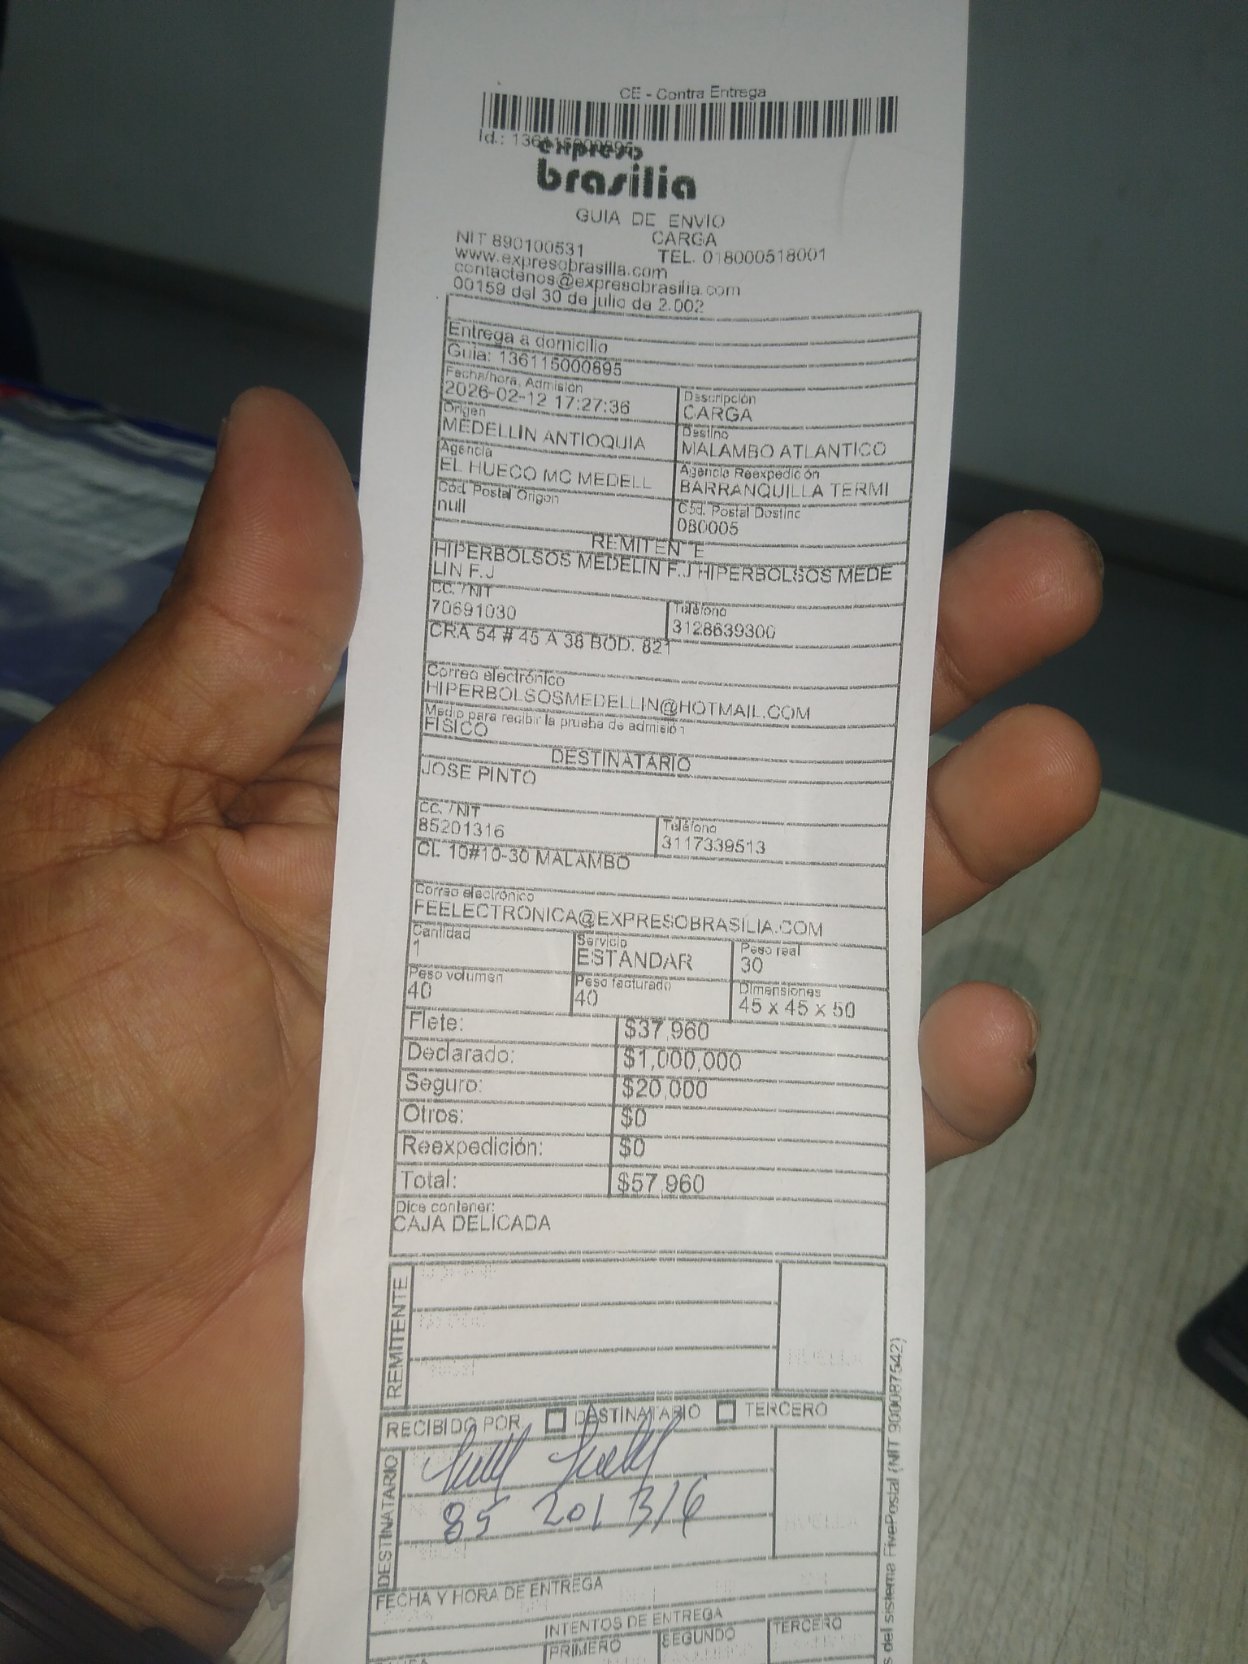 CE - Contra Entrega
Id.: 136115000895
expreso
brasilia
GUIA DE ENVIO
CARGA
NIT 890100531 TEL. 018000518001
www.expresobrasilia.com
contactenos@expresobrasilia.com
00159 del 30 de julio de 2.002
Entrega a domicilio
Guia: 136115000895
Fecha/hora, Admisión Descripción
2026-02-12 17:27:36 CARGA
Origen Destino
MEDELLIN ANTIOQUIA MALAMBO ATLANTICO
Agencia Agencia Reexpedición
EL HUECO MC MEDELL BARRANQUILLA TERMI
Cód. Postal Origen Cód. Postal Destino
null 080005
REMITENTE
HIPERBOLSOS MEDELIN F.J HIPERBOLSOS MEDE
LIN F.J
CC. / NIT Teléfono
70691030 3128639300
CRA 54 # 45 A 38 BOD. 821
Correo electrónico
HIPERBOLSOSMEDELLIN@HOTMAIL.COM
Medio para recibir la prueba de admisión
FISICO
DESTINATARIO
JOSE PINTO
CC. / NIT Teléfono
85201316 3117339513
CL 10#10-30 MALAMBO
Correo electrónico
FEELECTRONICA@EXPRESOBRASILIA.COM
Cantidad Servicio Peso real
1 ESTANDAR 30
Peso volumen Peso facturado Dimensiones
40 40 45 x 45 x 50
Flete: $37,960
Declarado: $1,000,000
Seguro: $20,000
Otros: $0
Reexpedición: $0
Total: $57,960
Dice contener:
CAJA DELICADA
REMITENTE
RECIBIDO POR DESTINATARIO TERCERO
DESTINATARIO
85 201 316
FECHA Y HORA DE ENTREGA
INTENTOS DE ENTREGA
PRIMERO SEGUNDO TERCERO
s del sistema FivePostal (NIT 900087542)